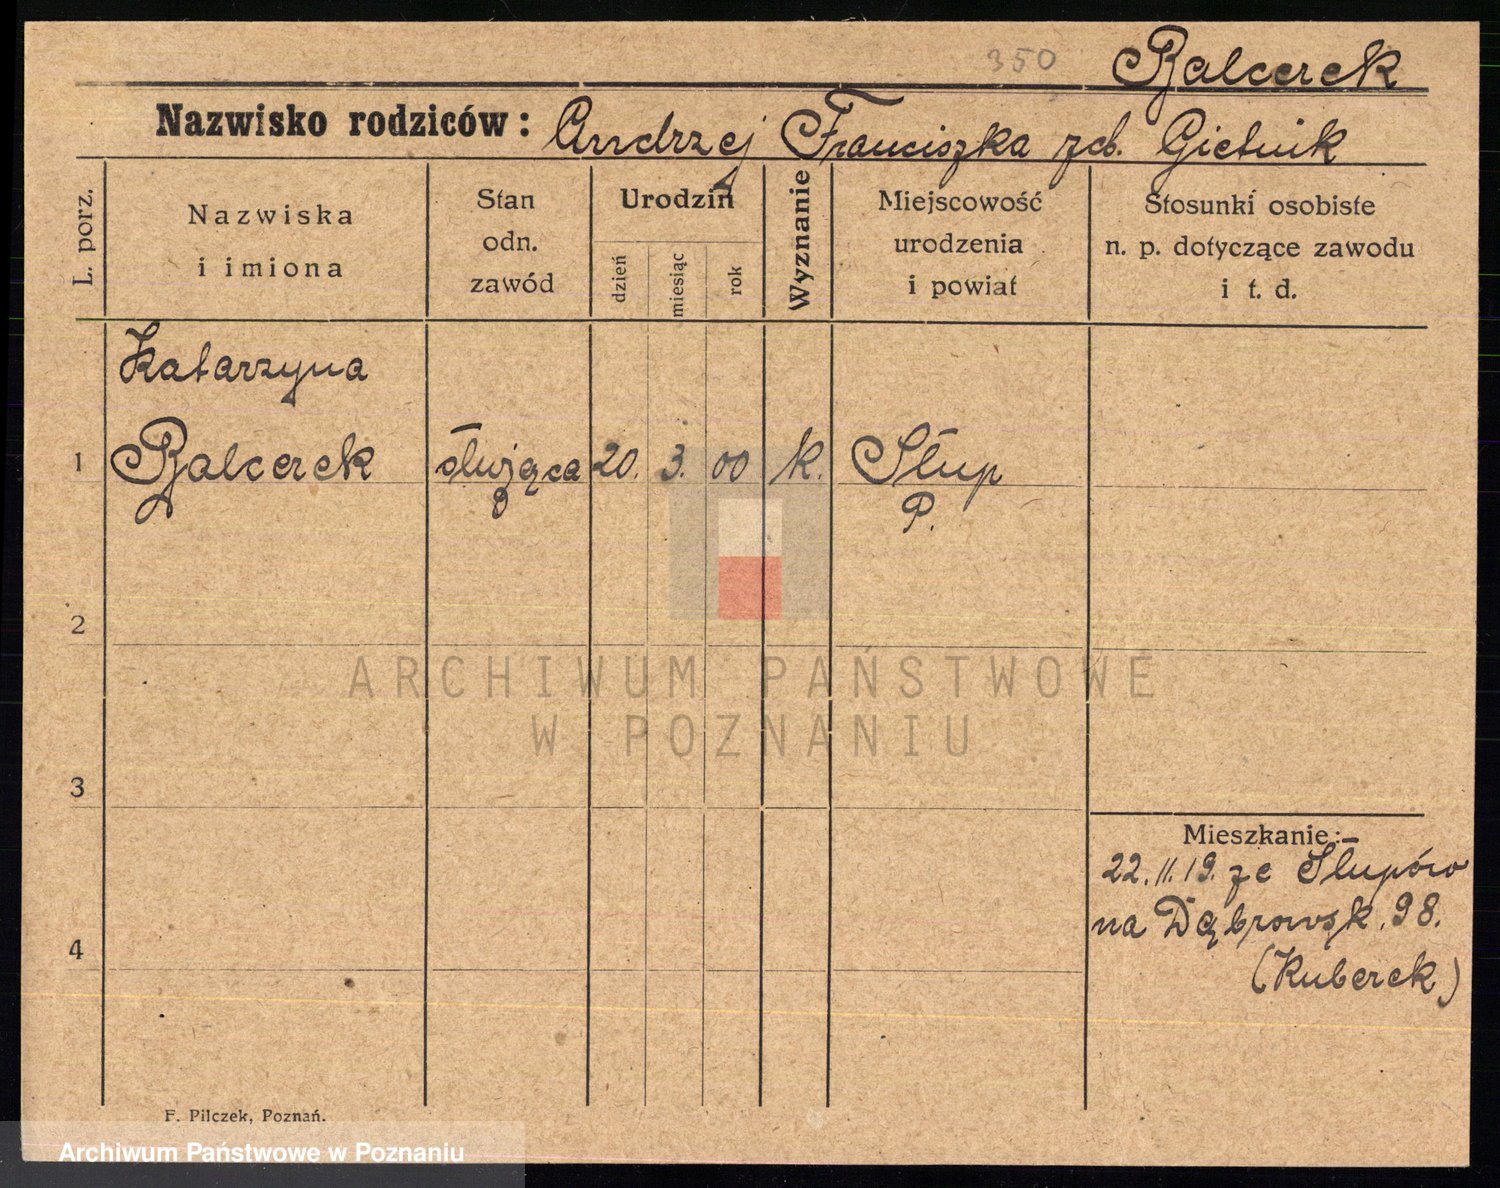 350 Balcerek
Nazwisko rodziców: Andrzej Franciszka zd. Gietnik
L. porz.
Nazwiska
i imiona
Stan
odn.
zawód
Urodzin
dzień
miesiąc
rok
Wyznanie
Miejscowość
urodzenia
i powiat
Stosunki osobiste
n. p. dotyczące zawodu
i t. d.
Katarzyna
1 Balcerek służąca 20. 3. 00 k. Słup
P.
2
ARCHIWUM PAŃSTWOWE
W POZNANIU
3
Mieszkanie:-
22.11.19. ze Słupów
na Dąbrowsk. 98.
4
(Kuberek)
F. Pilczek, Poznań.
Archiwum Państwowe w Poznaniu